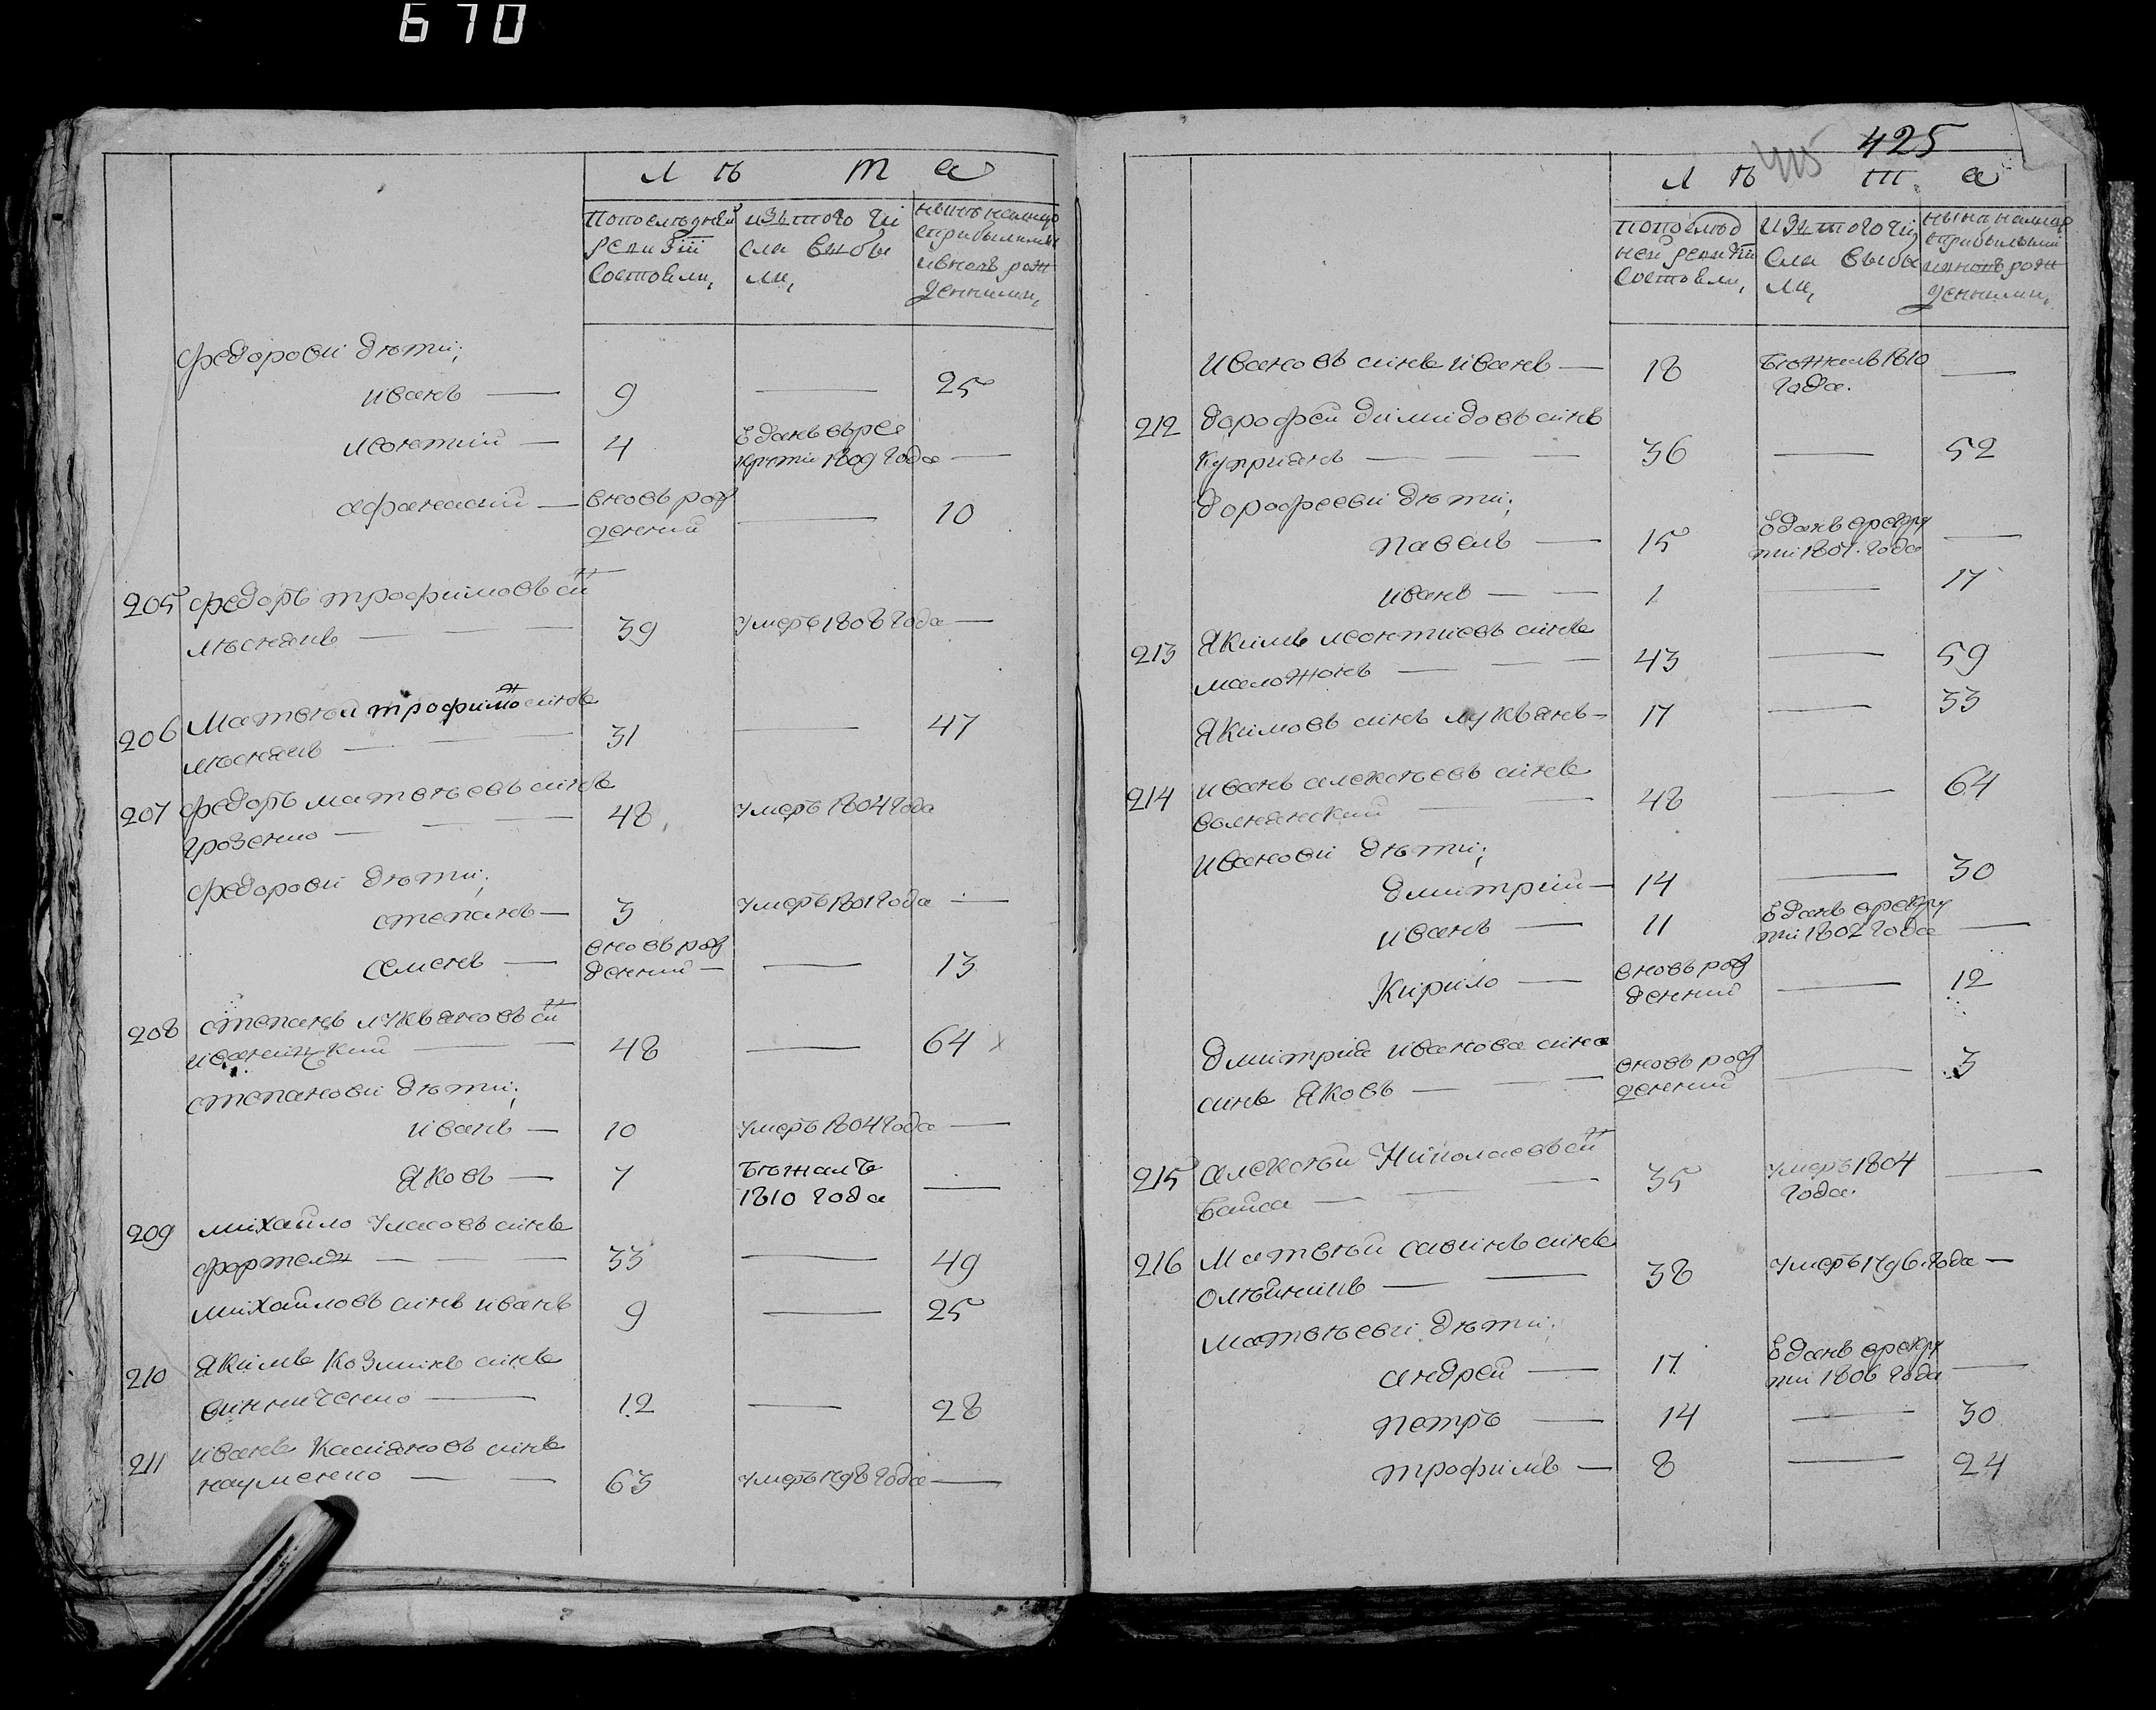 670
Л ѣ т а
Попослѣдней ревизіи состояли,
изътого чи сла выбы ли,
нынѣ налицо
Федорови дѣти;
иванъ — 9 — 25
леонтий — 4 Ѣданъ врекруты 1809 года —
афанасий — вновь рожденний — 10
205 федоръ трофимовъ сн
лѣснякъ — 39 умеръ 1808 года —
206 Матвей трофимовъ синъ
лѣснякъ — 31 — 47
207 федоръ матвѣевъ синъ
грозенко — 48 умеръ 1804 года
федорови дѣти;
степанъ — 3 умеръ 1801 года —
семенъ — вновь рожденний — — 13
208 степанъ лукьяновъ сн
иваницкий — 48 — 64
степанови дѣти;
иванъ — 10 умеръ 1804 года —
Яковъ — 7 бѣжалъ 1810 года —
209 михайло уласовъ синъ
— 33 — 49
михайловъ синъ иванъ 9 — 25
210 Якимъ Козминъ синъ
винниченко — 12 — 28
211 иванъ Касіяновъ синъ
науменко — 63 умеръ 1798 года —
425
Л ѣ т а
попослѣд ней ревизіи состояли,
изътого чи сла выбы ли,
нынѣ налицо
Ивановъ синъ иванъ — 18 бѣжалъ 1810 года. —
212 дорофей димидовъ синъ
купріянъ — 36 — 52
дорофееви дѣти;
павелъ — 15 Ѣданъ врекру ти 1807. года —
иванъ — 1 — 17
213 Якимъ леонтиевъ синъ
маложонъ — 43 — 59
Якимовъ синъ лукъянъ — 17 — 33
214 иванъ алексѣевъ синъ
волянский — 48 — 64
иванови дѣти;
дмитрий — 14 — 30
иванъ — 11 Ѣданъ врекру ти 1802 года —
Кирило — вновь рож денний — 12
Дмитрія иванова сина
синъ Яковъ — вновь рож денний — 3
215 алексѣй Николаевъ сн
байса — 35 умеръ 1804 года. —
216 Матвѣй савинъ синъ
олѣйникъ — 38 умеръ 1796. года —
матвѣеви дѣти;
андрей — 17 Ѣданъ врекру ти 1806 года —
петръ — 14 — 30
трофимъ — 8 — 24